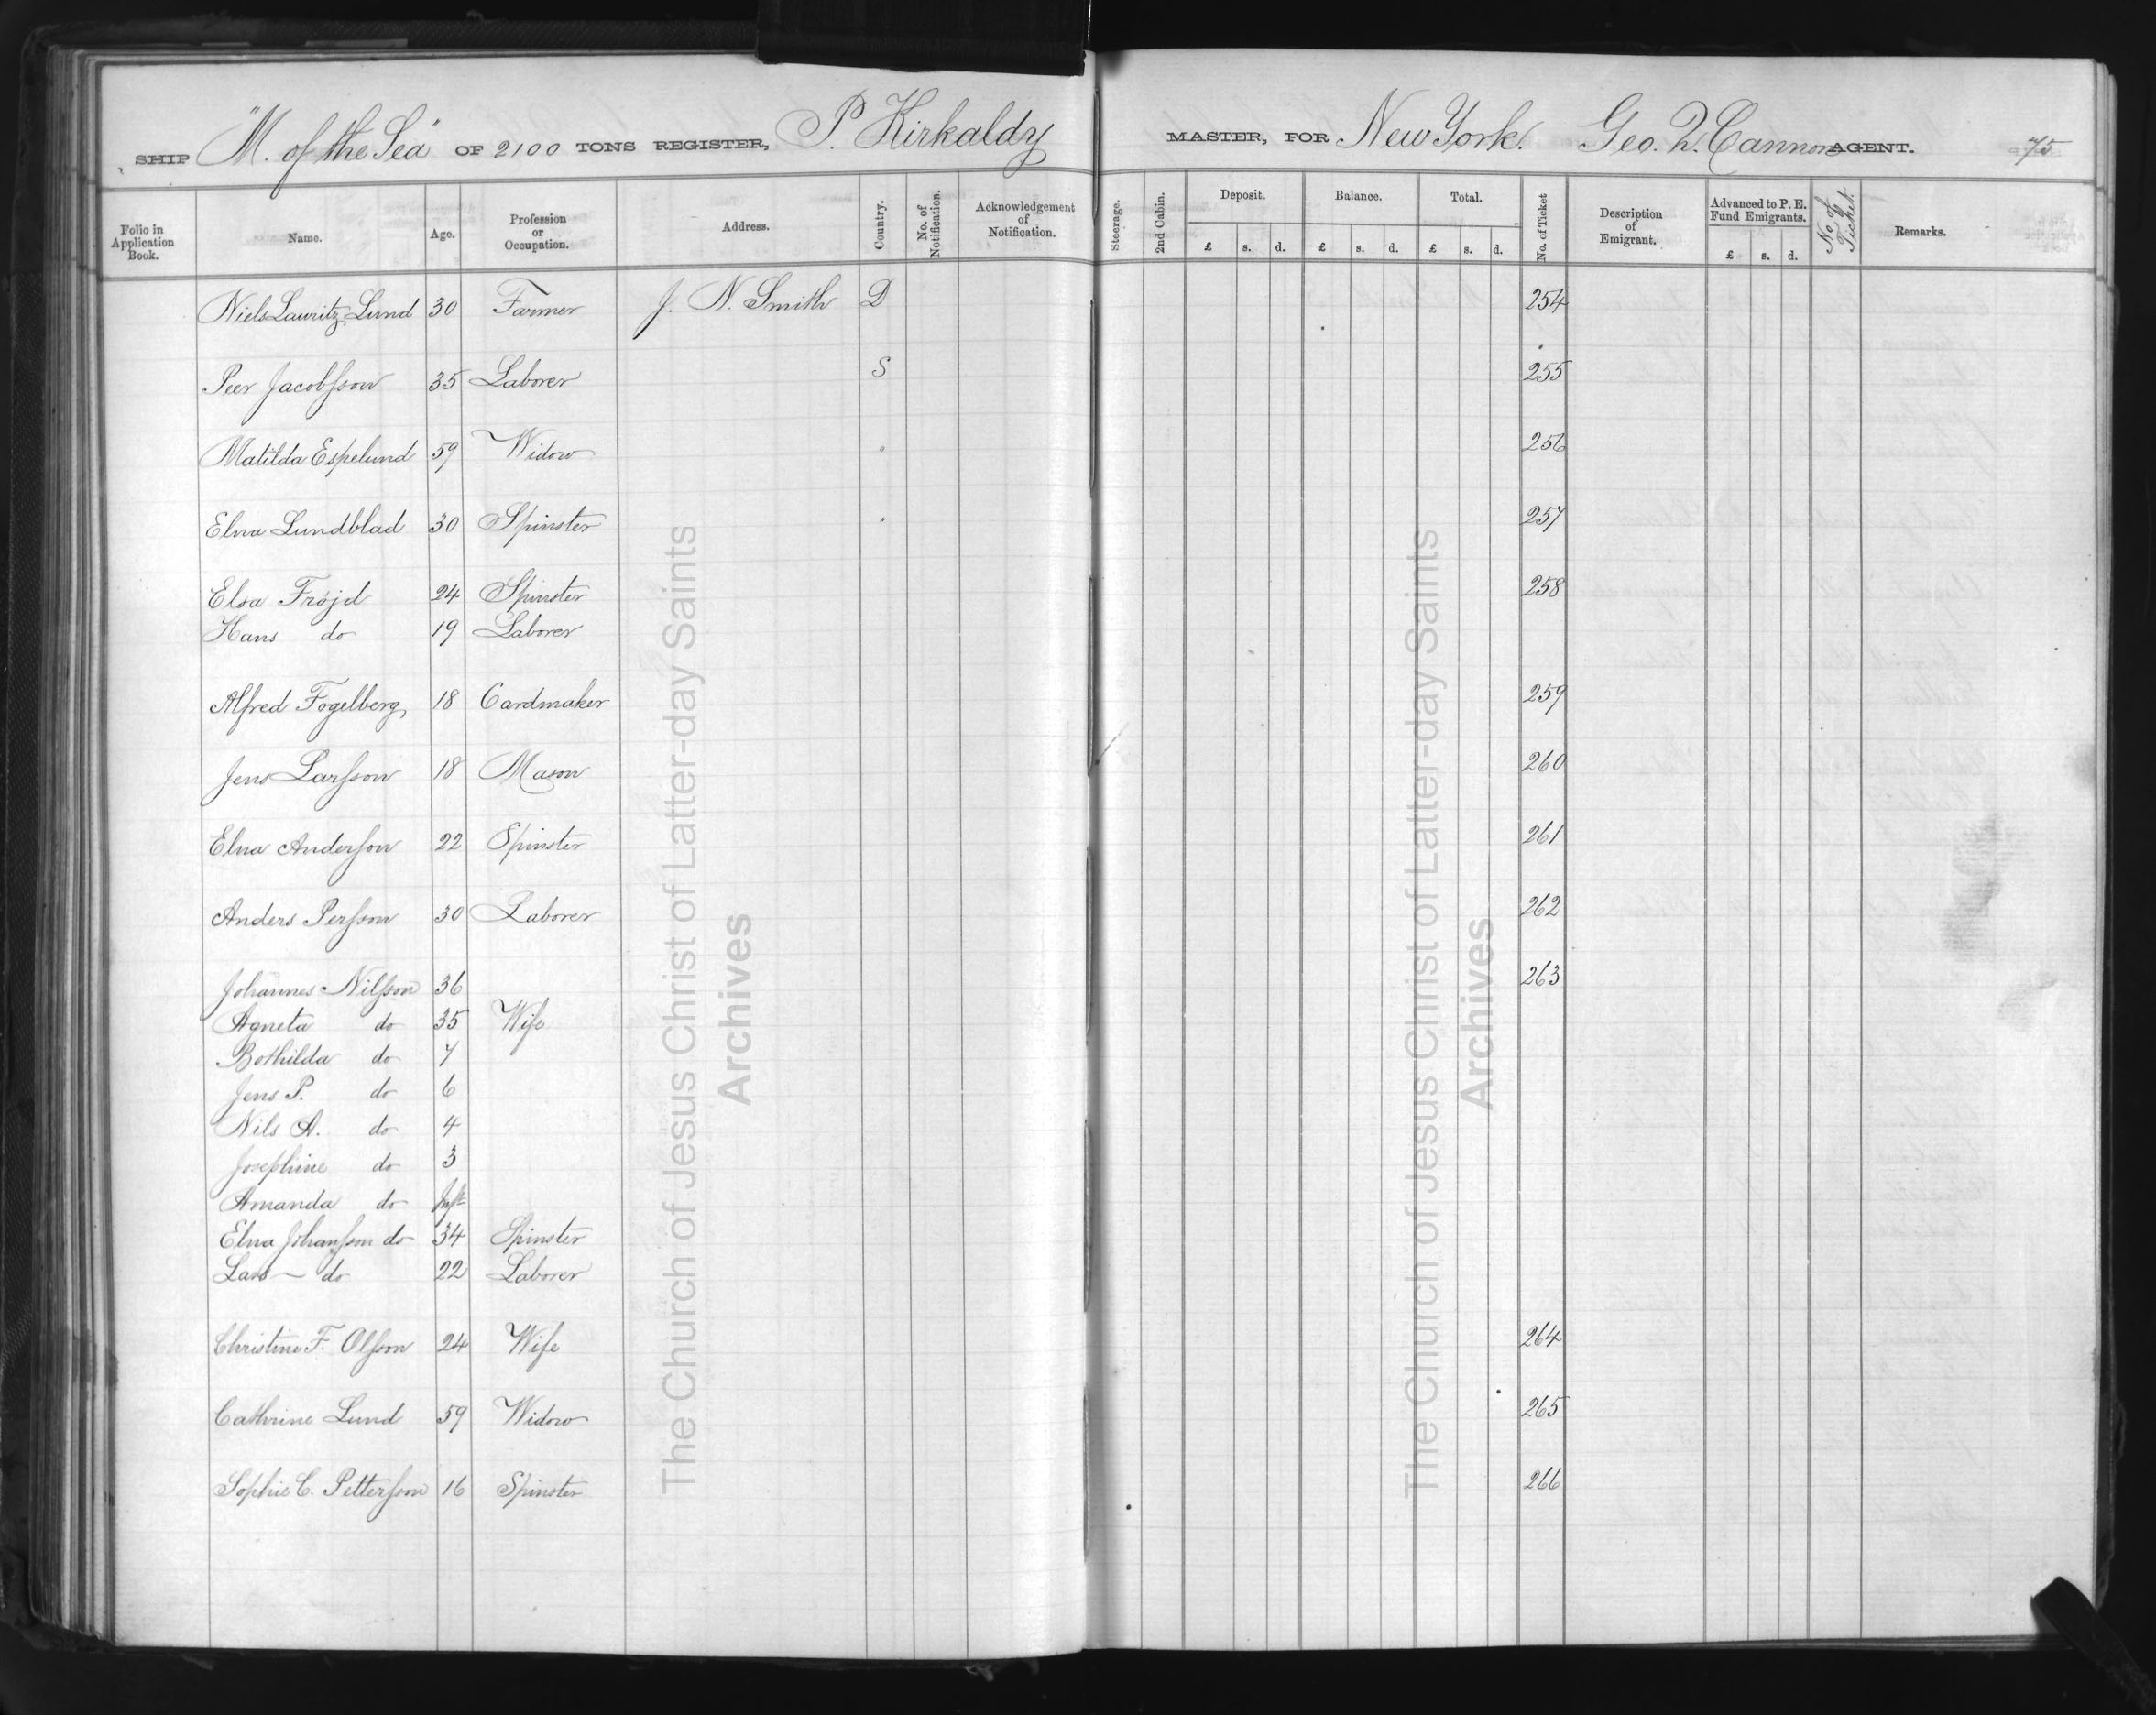 SHIP "M. of the Sea" OF 2100 TONS REGISTER, P. Kirkaldy MASTER, FOR New York. Geo. Q. Cannon AGENT. 75
Folio in Application Book. Name. Age. Profession or Occupation. Address. Country. No. of Notification. Acknowledgement of Notification. Steerage. 2nd Cabin. Deposit. £ s. d. Balance. £ s. d. Total. £ s. d. No. of Ticket Description of Emigrant. Advanced to P. E. Fund Emigrants. £ s. d. No. of Ticket. Remarks.
Niels Lauritz Lund 30 Farmer J. N. Smith D 254
Peer Jacobsson 35 Laborer S 255
Matilda Espelund 59 Widow " 256
Elna Lundblad 30 Spinster " 257
Elsa Fröjd 24 Spinster 258
Hans do 19 Laborer
Alfred Fogelberg, 18 Cardmaker 259
Jens Larsson 18 Mason 260
Elna Anderson 22 Spinster 261
Anders Persson 30 Laborer 262
Johannes Nilsson 36 263
Agneta do 35 Wife
Bothilda do 7
Jens P. do 6
Nils A. do 4
Josephine do 3
Amanda do Inft
Elna Johansson do 34 Spinster
Lars — do 22 Laborer
Christine F. Olsson 24 Wife 264
Cathrine Lund 59 Widow 265
Sophie C. Pettersson 16 Spinster 266
The Church of Jesus Christ of Latter-day Saints
Archives
The Church of Jesus Christ of Latter-day Saints
Archives